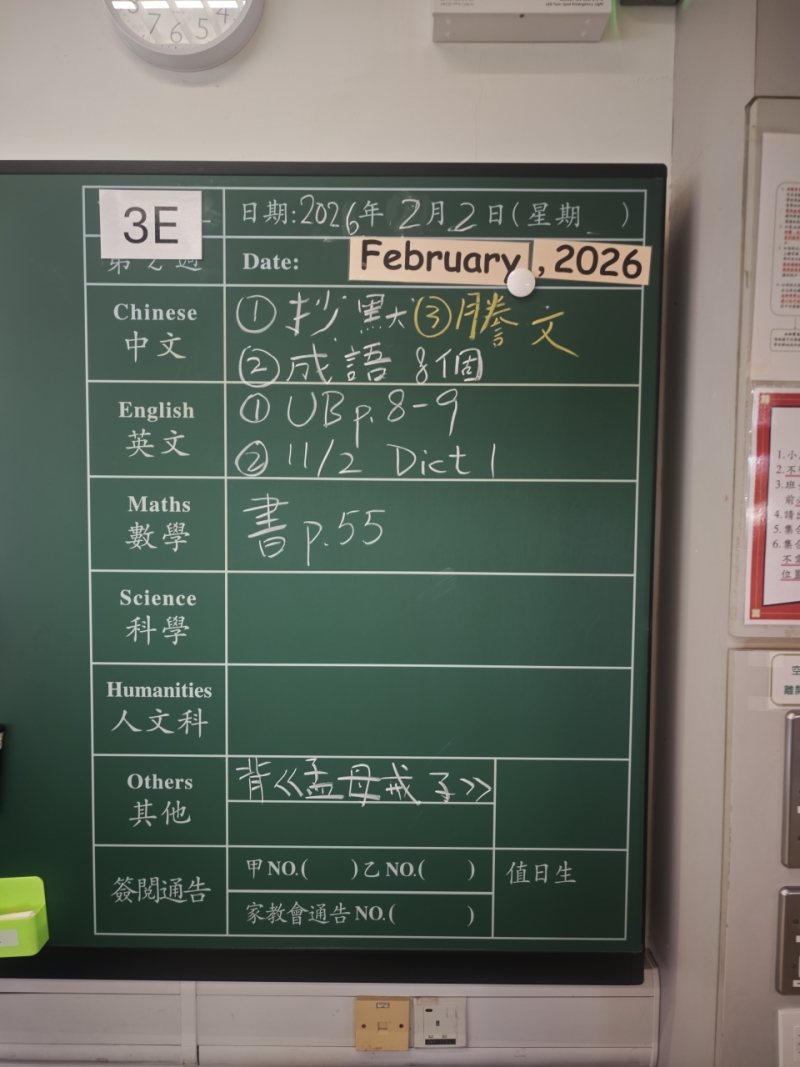 7 6 5 4
3E
日期:2026年2月2日(星期 )
第2週
Date: February, 2026
Chinese
中文
① 抄默 ③ 謄文
② 成語 8個
English
英文
① UB p.8-9
② 11/2 Dict 1
Maths
數學
書 p.55
Science
科學
Humanities
人文科
Others
其他
背《孟母戒子》
簽閱通告
甲NO.( )乙NO.( )
家教會通告NO.( )
值日生
1.小
2.不
3.班
前
4.請
5.集
6.集
不
位置